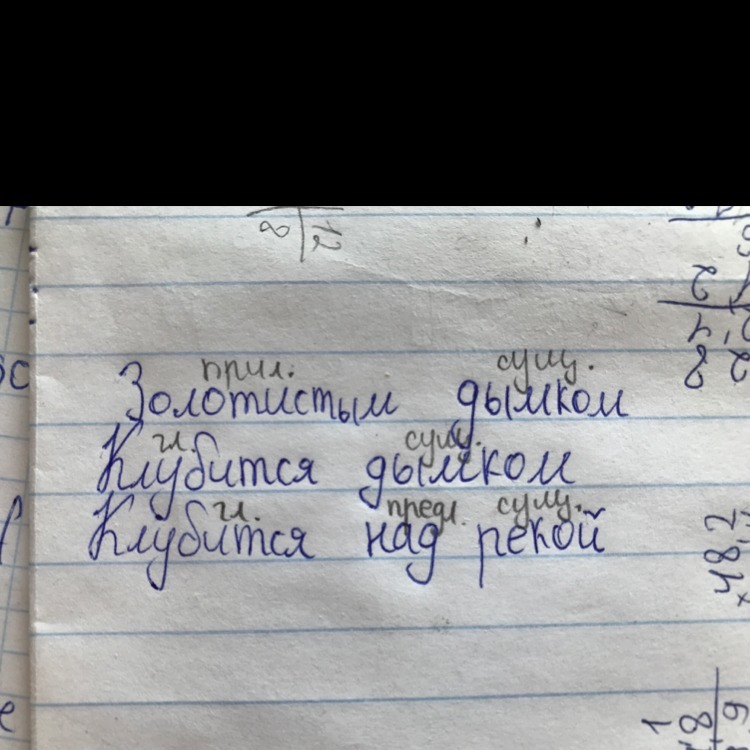 прил. сущ.
Золотистым дымком
гл. сущ.
Клубится дымком
гл. предл. сущ.
Клубится над рекой
12
8
2
48,2
1
18
9